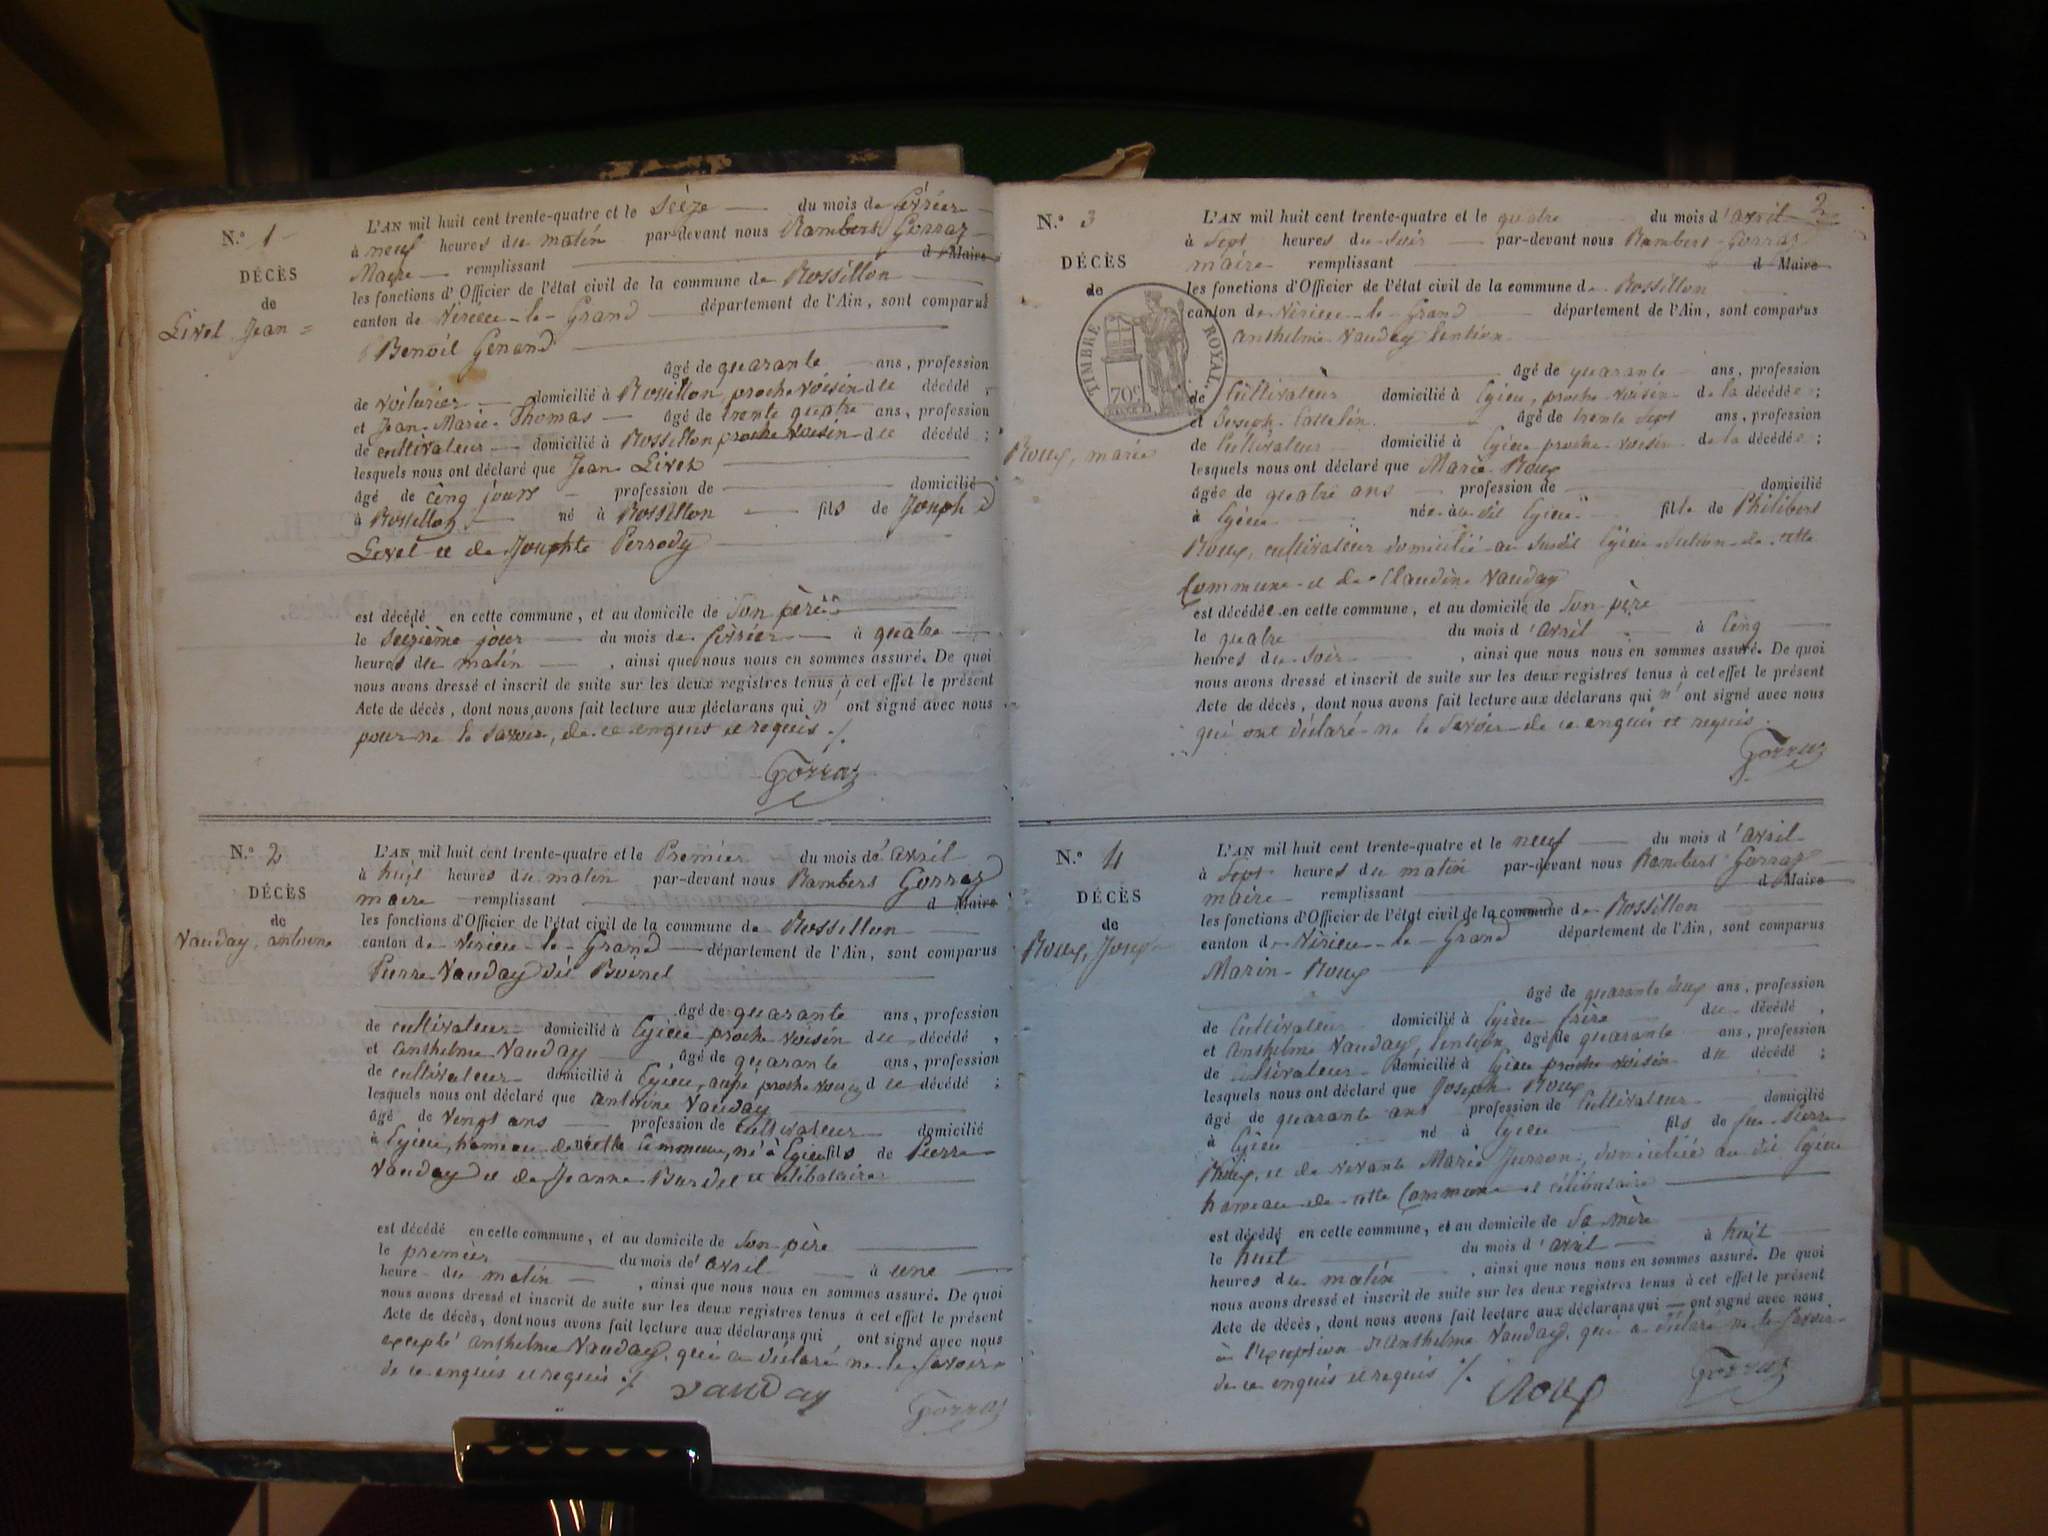 N.° 1
DÉCÈS
de
Livet Jean
L'AN mil huit cent trente-quatre et le Seize du mois de février
à neuf heures du matin par-devant nous Rambert Gorraz
Maire remplissant d Maire
les fonctions d'Officier de l'état civil de la commune de Rossillon
canton de Virieu-le-Grand département de l'Ain, sont comparus
Benoit Genand
âgé de quarante ans, profession
de voiturier domicilié à Rossillon, proche voisin du décédé,
et Jean-Marie Thomas âgé de trente quatre ans, profession
de cultivateur domicilié à Rossillon proche voisin du décédé;
lesquels nous ont déclaré que Jean Livet
âgé de cinq jours profession de domicilié
à Rossillon né à Rossillon fils de Joseph
Livet et de Josephte Perrody
est décédé en cette commune, et au domicile de son père
le seizième jour du mois de février à quatre
heures du matin, ainsi que nous nous en sommes assuré. De quoi
nous avons dressé et inscrit de suite sur les deux registres tenus à cet effet le présent
Acte de décès, dont nous avons fait lecture aux déclarans qui n'ont signé avec nous
pour ne le savoir, de ce enquis et requis ./.
Gorraz
N.° 2
DÉCÈS
de
Vauday, antoine
L'AN mil huit cent trente-quatre et le Premier du mois d'avril
à huit heures du matin par-devant nous Rambert Gorraz
maire remplissant d Maire
les fonctions d'Officier de l'état civil de la commune de Rossillon
canton de Virieu-le-Grand département de l'Ain, sont comparus
Pierre Vauday dit
âgé de quarante ans, profession
de cultivateur domicilié à Egieu proche voisin du décédé,
et anthelme Vauday âgé de quarante ans, profession
de cultivateur domicilié à Egieu, aussi proche voisin du décédé;
lesquels nous ont déclaré que antoine Vauday
âgé de vingt ans profession de cultivateur domicilié
à Egieu, hameau de cette Commune, né à Egieu fils de Pierre
Vauday et de Jeanne Burdet et célibataire
est décédé en cette commune, et au domicile de son père
le premier du mois d'avril à une
heure du matin, ainsi que nous nous en sommes assuré. De quoi
nous avons dressé et inscrit de suite sur les deux registres tenus à cet effet le présent
Acte de décès, dont nous avons fait lecture aux déclarans qui ont signé avec nous
excepté anthelme Vauday, qui a déclaré ne le savoir
de ce enquis et requis ./.
Vauday Gorraz
2
N.° 3
DÉCÈS
de
TIMBRE ROYAL.
70c
Roux, marie
L'AN mil huit cent trente-quatre et le quatre du mois d'avril
à Sept heures du soir par-devant nous Rambert Gorraz
maire remplissant d Maire
les fonctions d'Officier de l'état civil de la commune de Rossillon
canton de Virieu-le-Grand département de l'Ain, sont comparus
anthelme Vauday
âgé de quarante ans, profession
de Cultivateur domicilié à Egieu, proche voisin de la décédée;
et Joseph âgé de trente sept ans, profession
de Cultivateur domicilié à Egieu proche voisin de la décédée;
lesquels nous ont déclaré que Marie Roux
âgée de quatre ans profession de domicilié
à Egieu née au dit Egieu fille de Philibert
Roux, cultivateur domicilié au susdit Egieu section de cette
Commune et de Claudine Vauday
est décédée en cette commune, et au domicile de son père
le quatre du mois d'avril à cinq
heures du soir, ainsi que nous nous en sommes assuré. De quoi
nous avons dressé et inscrit de suite sur les deux registres tenus à cet effet le présent
Acte de décès, dont nous avons fait lecture aux déclarans qui n'ont signé avec nous
qui ont déclaré ne le savoir de ce enquis et requis.
Gorraz
N.° 4
DÉCÈS
de
Roux, Joseph
L'AN mil huit cent trente-quatre et le neuf du mois d'avril
à Sept heures du matin par-devant nous Rambert Gorraz
maire remplissant d Maire
les fonctions d'Officier de l'état civil de la commune de Rossillon
canton de Virieu-le-Grand département de l'Ain, sont comparus
Marin Roux
âgé de quarante deux ans, profession
de Cultivateur domicilié à Egieu frère du décédé,
et anthelme Vauday, âgé de quarante ans, profession
de cultivateur domicilié à Egieu proche voisin du décédé;
lesquels nous ont déclaré que Joseph Roux
âgé de quarante ans profession de Cultivateur domicilié
à Egieu né à Egieu fils de feu Pierre
Roux, et de vivante Marie domiciliée au dit Egieu
hameau de cette Commune et célibataire
est décédé en cette commune, et au domicile de sa mère
le huit du mois d'avril à huit
heures du matin, ainsi que nous nous en sommes assuré. De quoi
nous avons dressé et inscrit de suite sur les deux registres tenus à cet effet le présent
Acte de décès, dont nous avons fait lecture aux déclarans qui ont signé avec nous
à l'exception d'Anthelme Vauday, qui a déclaré ne le savoir
de ce enquis et requis ./.
Roux Gorraz